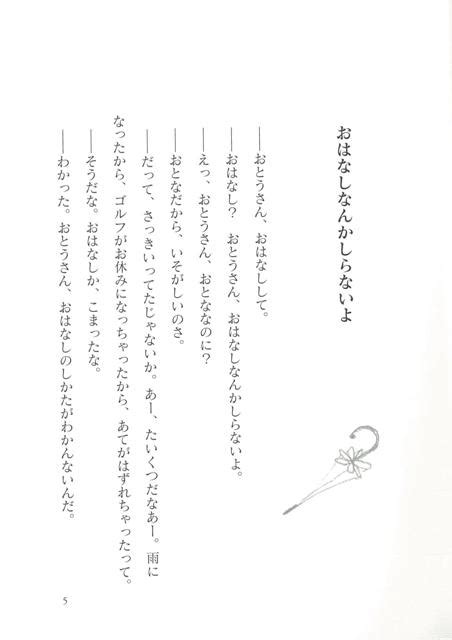 おはなしなんかしらないよ
――おとうさん、おはなしして。
――おはなし？　おとうさん、おはなしなんかしらないよ。
――えっ、おとうさん、おとななのに？
――おとなだから、いそがしいのさ。
――だって、さっきいってたじゃないか。あー、たいくつだなあー。雨に
なったから、ゴルフがお休みになっちゃったから、あてがはずれちゃったって。
――そうだな。おはなしか、こまったな。
――わかった。おとうさん、おはなしのしかたがわかんないんだ。
5